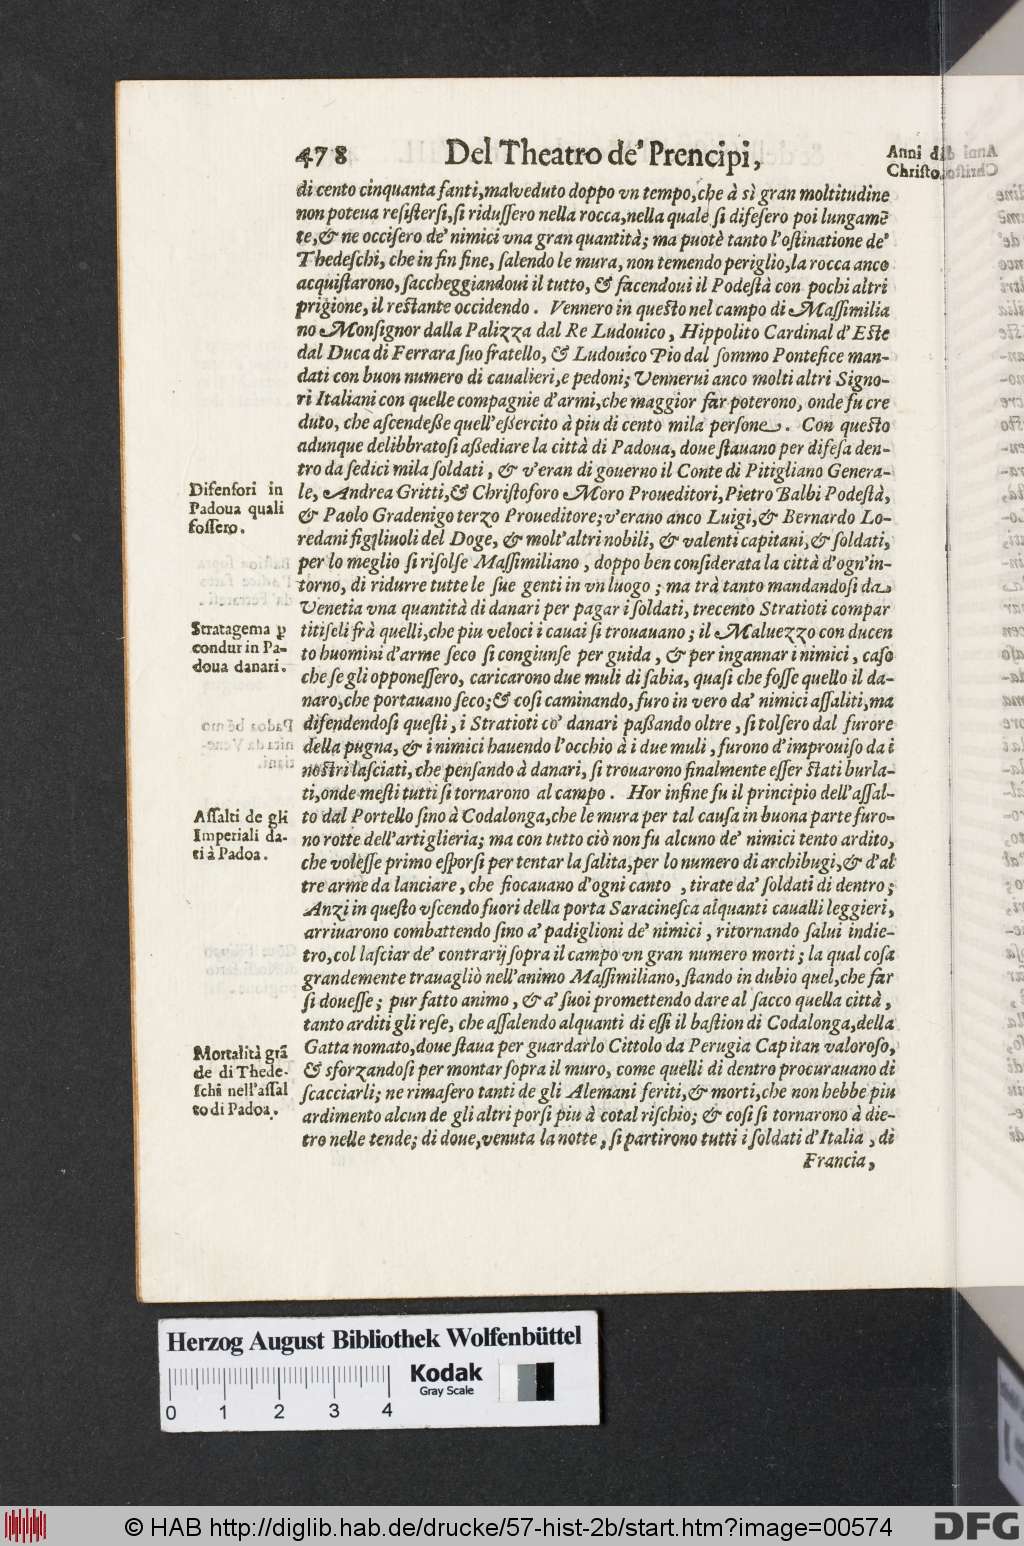 478 Del Theatro de' Prencipi,
Anni di
Christo.
di cento cinquanta fanti, ma veduto doppo vn tempo, che à sì gran moltitudine
non poteua resistersi, si ridussero nella rocca, nella quale si difesero poi lungamẽ
te, & ne occisero de' nimici vna gran quantità; ma puotè tanto l'ostinatione de'
Thedeschi, che in fin fine, salendo le mura, non temendo periglio, la rocca anco
acquistarono, saccheggiandoui il tutto, & facendoui il Podestà con pochi altri
prigione, il restante occidendo. Vennero in questo nel campo di Massimilia
no Monsignor dalla Palizza dal Re Ludouico, Hippolito Cardinal d'Este
dal Duca di Ferrara suo fratello, & Ludouico Pio dal sommo Pontefice man-
dati con buon numero di caualieri, e pedoni; Vennerui anco molti altri Signo-
ri Italiani con quelle compagnie d'armi, che maggior far poterono, onde fu cre
duto, che ascendeße quell'eßercito à piu di cento mila persone. Con questo
adunque delibbratosi aßediare la città di Padoua, doue stauano per difesa den-
tro da sedici mila soldati, & v'eran di gouerno il Conte di Pitigliano Genera-
Difensori in
Padoua quali
fossero.
le, Andrea Gritti, & Christoforo Moro Proueditori, Pietro Balbi Podestà,
& Paolo Gradenigo terzo Proueditore; v'erano anco Luigi, & Bernardo Lo-
redani figliuoli del Doge, & molt'altri nobili, & valenti capitani, & soldati,
per lo meglio si risolse Massimiliano, doppo ben considerata la città d'ogn'in-
torno, di ridurre tutte le sue genti in vn luogo; ma trà tanto mandandosi da
Venetia vna quantità di danari per pagar i soldati, trecento Stratioti compar
Stratagema p
condur in Pa-
doua danari.
titiseli frà quelli, che piu veloci i cauai si trouauano; il Maluezzo con ducen
to huomini d'arme seco si congiunse per guida, & per ingannar i nimici, caso
che se gli opponessero, caricarono due muli di sabia, quasi che fosse quello il da-
naro, che portauano seco; & cosi caminando, furo in vero da' nimici assaliti, ma
difendendosi questi, i Stratioti co' danari paßando oltre, si tolsero dal furore
della pugna, & i nimici hauendo l'occhio à i due muli, furono d'improuiso da i
nostri lasciati, che pensando à danari, si trouarono finalmente esser stati burla-
ti, onde mesti tutti si tornarono al campo. Hor infine fu il principio dell'assal-
Assalti de gli
Imperiali da-
ti à Padoa.
to dal Portello sino à Codalonga, che le mura per tal causa in buona parte furo-
no rotte dell'artiglieria; ma con tutto ciò non fu alcuno de' nimici tento ardito,
che volesse primo esporsi per tentar la salita, per lo numero di archibugi, & d'al
tre arme da lanciare, che fiocauano d'ogni canto, tirate da' soldati di dentro;
Anzi in questo vscendo fuori della porta Saracinesca alquanti caualli leggieri,
arriuarono combattendo sino a' padiglioni de' nimici, ritornando salui indie-
tro, col lasciar de' contrarij sopra il campo vn gran numero morti; la qual cosa
grandemente trauagliò nell'animo Massimiliano, stando in dubio quel, che far
si douesse; pur fatto animo, & a' suoi promettendo dare al sacco quella città,
tanto arditi gli rese, che assalendo alquanti di essi il bastion di Codalonga, della
Mortalità grã
de di Thede-
schi nell'assal
to di Padoa.
Gatta nomato, doue staua per guardarlo Cittolo da Perugia Capitan valoroso,
& sforzandosi per montar sopra il muro, come quelli di dentro procurauano di
scacciarli; ne rimasero tanti de gli Alemani feriti, & morti, che non hebbe piu
ardimento alcun de gli altri porsi piu à cotal rischio; & cosi si tornarono à die-
tro nelle tende; di doue, venuta la notte, si partirono tutti i soldati d'Italia, di
Francia,
Herzog August Bibliothek Wolfenbüttel
Kodak
Gray Scale
0 1 2 3 4
© HAB http://diglib.hab.de/drucke/57-hist-2b/start.htm?image=00574
DFG